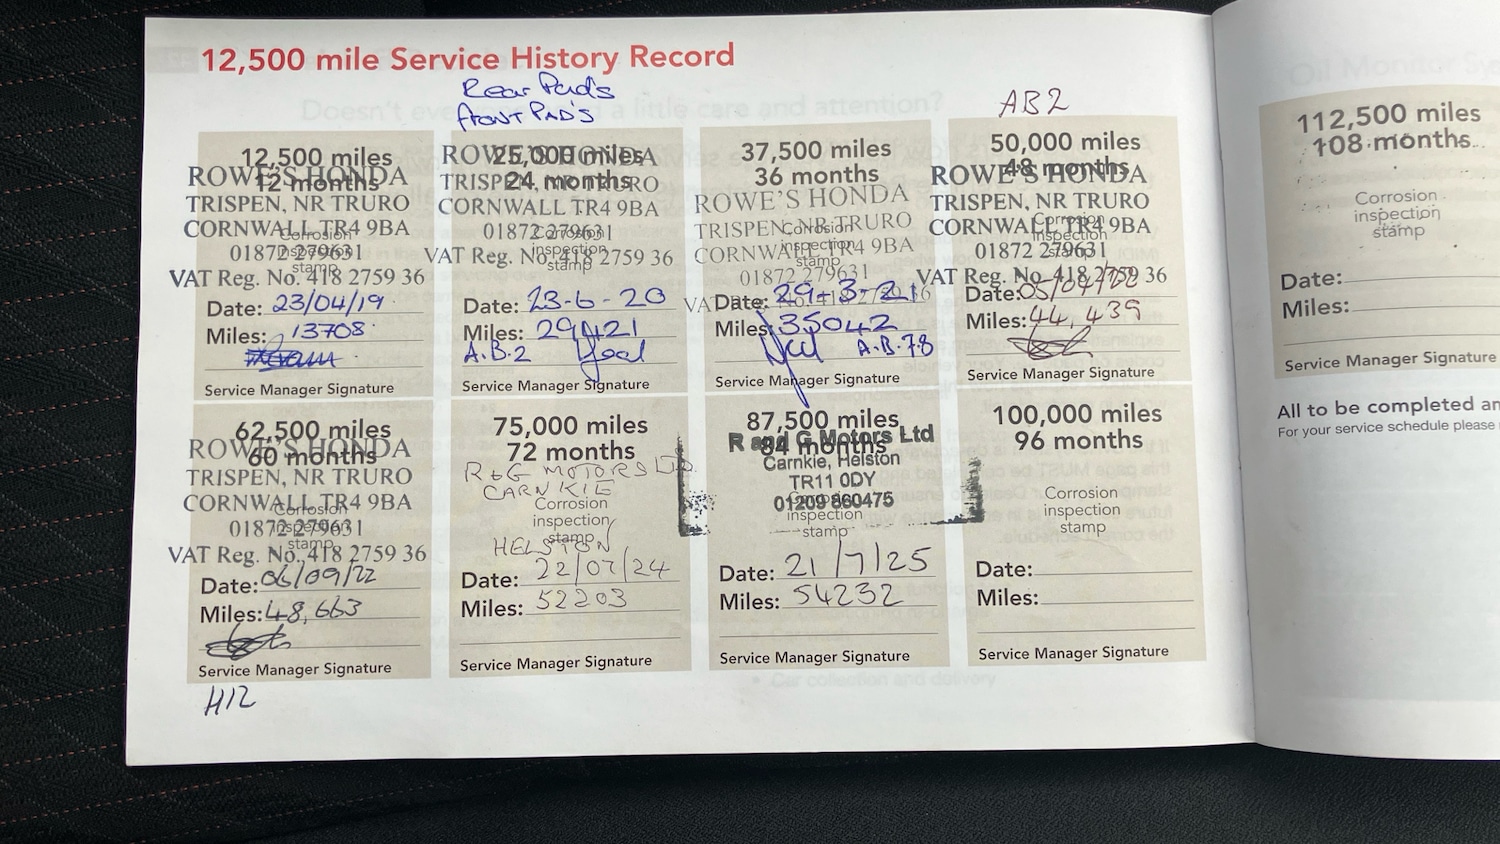 12,500 mile Service History Record
Rear Pad's
front PAD'S
AB2
12,500 miles
12 months
ROWE'S HONDA
TRISPEN, NR TRURO
CORNWALL TR4 9BA
01872 279631
VAT Reg. No. 418 2759 36
Corrosion
inspection
stamp
Date: 23/04/19
Miles: 13708
Service Manager Signature
25,000 miles
24 months
ROWE'S HONDA
TRISPEN, NR TRURO
CORNWALL TR4 9BA
01872 279631
VAT Reg. No. 418 2759 36
Corrosion
inspection
stamp
Date: 23-6-20
Miles: 29421
A.B.2
Service Manager Signature
37,500 miles
36 months
ROWE'S HONDA
TRISPEN, NR TRURO
CORNWALL TR4 9BA
01872 279631
VAT Reg. No. 418 2759 36
Corrosion
inspection
stamp
Date: 29-3-21
Miles: 35042
A.B.78
Service Manager Signature
50,000 miles
48 months
ROWE'S HONDA
TRISPEN, NR TRURO
CORNWALL TR4 9BA
01872 279631
VAT Reg. No. 418 2759 36
Corrosion
inspection
stamp
Date:
Miles: 44,439
Service Manager Signature
62,500 miles
60 months
ROWE'S HONDA
TRISPEN, NR TRURO
CORNWALL TR4 9BA
01872 279631
VAT Reg. No. 418 2759 36
Corrosion
inspection
stamp
Date: 06/09/22
Miles: 48,663
Service Manager Signature
H12
75,000 miles
72 months
R&G MOTORS LTD.
CARNKIE
Corrosion
inspection
stamp
HELSTON
Date: 22/07/24
Miles: 52203
Service Manager Signature
87,500 miles
84 months
R and G Motors Ltd
Carnkie, Helston
TR11 0DY
01209 860475
Corrosion
inspection
stamp
Date: 21/7/25
Miles: 54232
Service Manager Signature
100,000 miles
96 months
Corrosion
inspection
stamp
Date:
Miles:
Service Manager Signature
112,500 miles
108 months
Corrosion
inspection
stamp
Date:
Miles:
Service Manager Signature
All to be completed
For your service schedule please